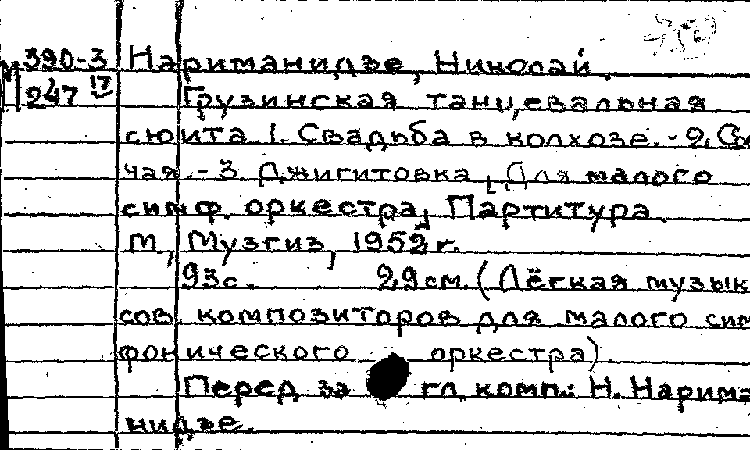 М 390-3 Нариманидзе, Николай.
247 17 Грузинская танцевальная
сюита 1. Свадьба в колхозе. - 2.
чая. - 3. Джигитовка [Для малого
симф. оркестра] Партитура.
М., Музгиз, 1952 г.
93 с. 29 см. (Лёгкая музык
сов. композиторов для малого сим
фонического оркестра)
Перед за гл. комп.: Н. Нарима
нидзе.